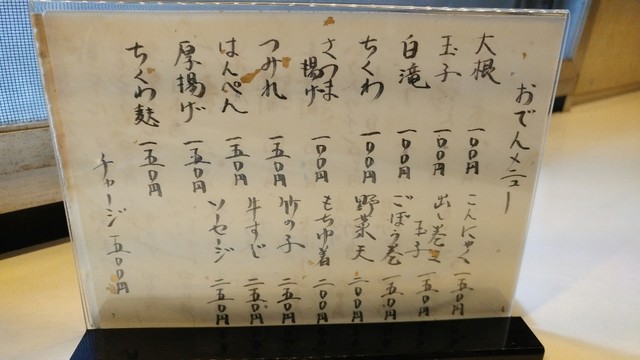 おでんメニュー
大根 一〇〇円
玉子 一〇〇円
白滝 一〇〇円
ちくわ 一〇〇円
さつま揚げ 一〇〇円
つみれ 一五〇円
はんぺん 一五〇円
厚揚げ 一五〇円
ちくわ麩 一五〇円
こんにゃく 一五〇円
出し巻き玉子 一五〇円
ごぼう巻 一五〇円
野菜天 二〇〇円
もち巾着 二〇〇円
竹の子 二五〇円
牛すじ 二五〇円
ソーセージ 二五〇円
チャージ 五〇〇円